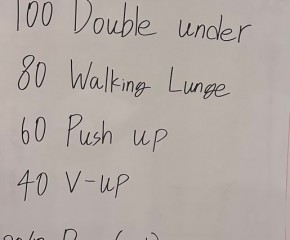 100 Double under
80 Walking Lunge
60 Push up
40 V-up